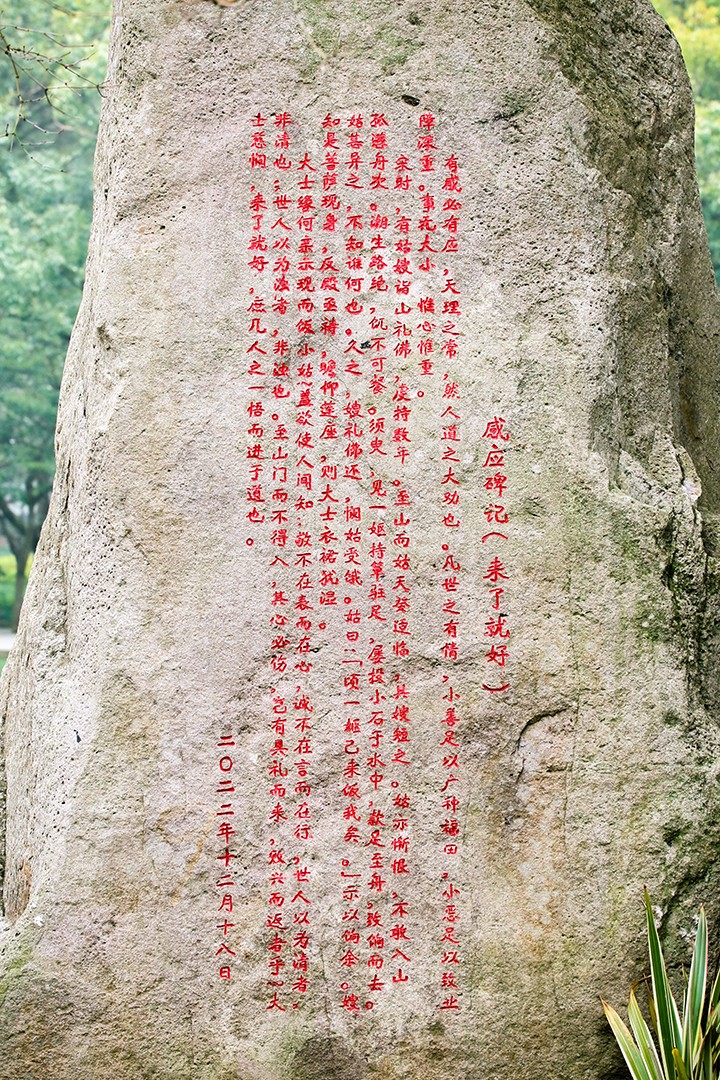 感应碑记(来了就好)
有感必有应,天理之常,然人道之大功也。凡世之有情,小善足以广种福田。小恶足以致业
障深重。事无大小,惟心惟重。
宋时,有姑嫂诣山礼佛,虔持数年。至山而姑天癸适临,其嫂短之。姑亦惭恨,不敢入山
孤舟次。潮生路绝,饥不可餐。须臾,见一妪持箪驻足,屡投小石于水中,款足至舟,致饷而去。
姑甚异之,不知谁何也。久之,嫂礼佛还,悯姑受饿。姑曰:“顷一妪已来饭我矣。”示以饷余。嫂
知是菩萨现身,反殿亟祷,瞻仰莲座,则大士衣裙犹湿。
大士缘何亲示现而饭小姑~盖欲使人闻知:敬不在表而在心,诚不在言而在行。世人以为清者,
非清也;世人以为浊者,非浊也。至山门而不得入,其心必伤,岂有具礼而来,败兴而返者乎~大
士慈悯,来了就好,庶几人之一悟而进于道也。
二〇二二年十二月十八日